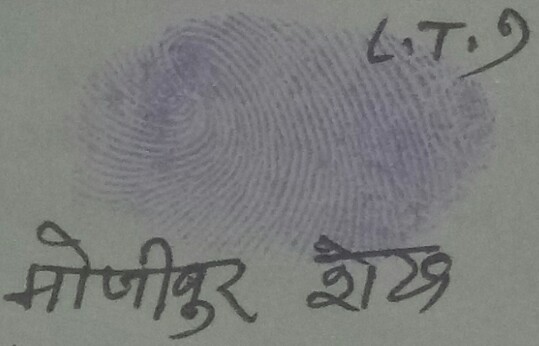 L.T.I
मोजीबुर शेख